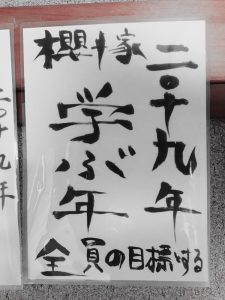 二〇十九年
櫻井家
学ぶ年
全員の目標する
二〇十九年